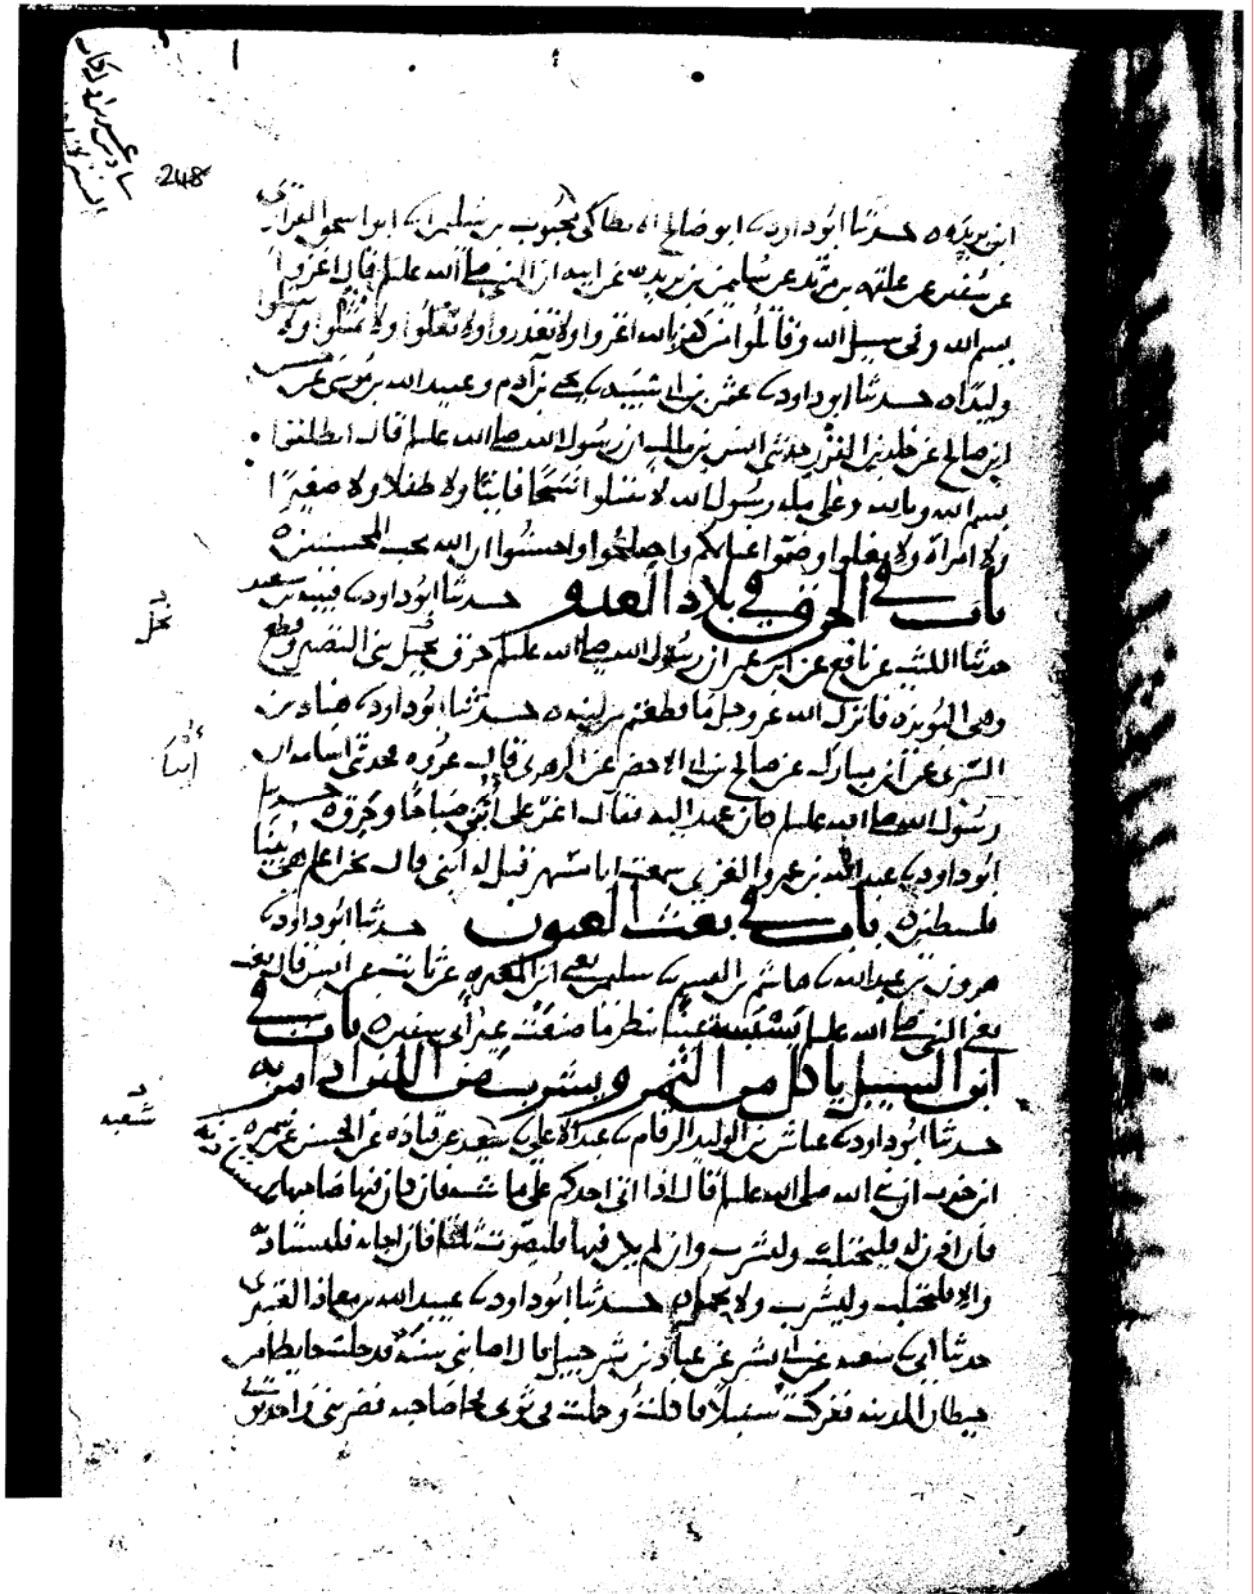 248
ابن بريدة ه حدثنا ابو داود ابو صالح الانطاكي محبوب بن موسى ابو اسحق الفزاري
عن سفين عن علقمة بن مرثد عن سليمن بن بريده عن ابيه ان النبي صلى الله عليه قال اغزوا
بسم الله وفي سبيل الله وقاتلوا من كفر بالله اغزوا ولا تغدروا ولا تغلوا ولا تمثلوا ولا تقتلوا
وليدا ه حدثنا ابو داود عثمن بن ابي شيبه يحيى بن آدم وعبيد الله بن موسى عن حسن
ابن صالح عن خلد بن الفزر حدثني انس بن ملك ان رسول الله صلى الله عليه قال انطلقوا
بسم الله وبالله وعلى مله رسول الله لا تقتلوا شيخا فانيا ولا طفلا ولا صغيرا
ولا امراة ولا تغلوا وضموا غنائمكم واصلحوا واحسنوا ان الله يحب المحسنين ه
باب في الحرق في بلاد العدو حدثنا ابو داود قتيبه بن سعيد
حدثنا الليث عن نافع عن ابن عمر ان رسول الله صلى الله عليه حرق نخيل بني النضير وقطع
نخل
وهي البويره فانزل الله عز وجل ما قطعتم من لينه ه حدثنا ابو داود هناد بن
السري عن ابن مبارك عن صالح بن ابي الاخضر عن الزهري قال عروه فحدثني اسامه ان
رسول الله صلى الله عليه كان عهد اليه فقال اغر على ابنى صباحا وحرق ه حدثنا
ابو داود عبد الله بن عمرو الغزي سمعت ابا مسهر قيل له ابنى قال نحن اعلم هي يبنا
فلسطين ه باب في بعث العيون حدثنا ابو داود
هرون بن عبد الله هاشم بن القسم سليمن يعني ابن المغيره عن ثابت عن انس قال بعث
يعني النبي صلى الله عليه بسبسة عينا ينظر ما صنعت عير ابي سفين ه باب في
ابن السبيل ياكل من التمر ويشرب من اللبن اذا مر به
شعبه
حدثنا ابو داود عياش بن الوليد الرقام عبد الاعلى سعيد عن قتاده عن الحسن عن سمره
ابن جندب ان نبي الله صلى الله عليه قال اذا اتى احدكم على ماشيه فان كان فيها صاحبها فليستاذنه
فان اذن له فليحتلب وليشرب وان لم يكن فيها فليصوت ثلثا فان اجابه فليستاذنه
والا فليحتلب وليشرب ولا يحمل ه حدثنا ابو داود عبيد الله بن معاذ العنبري
حدثنا ابي شعبه عن ابي بشر عن عباد بن شرحبيل قال اصابني سنه فدخلت حايطا من
حيطان المدينه ففركت سنبلا فاكلت وحملت في ثوبي فجا صاحبه فضربني واخذ ثوبي